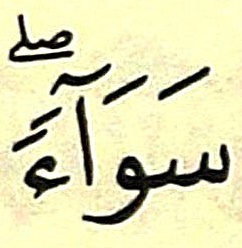 سَوَآءًۖ